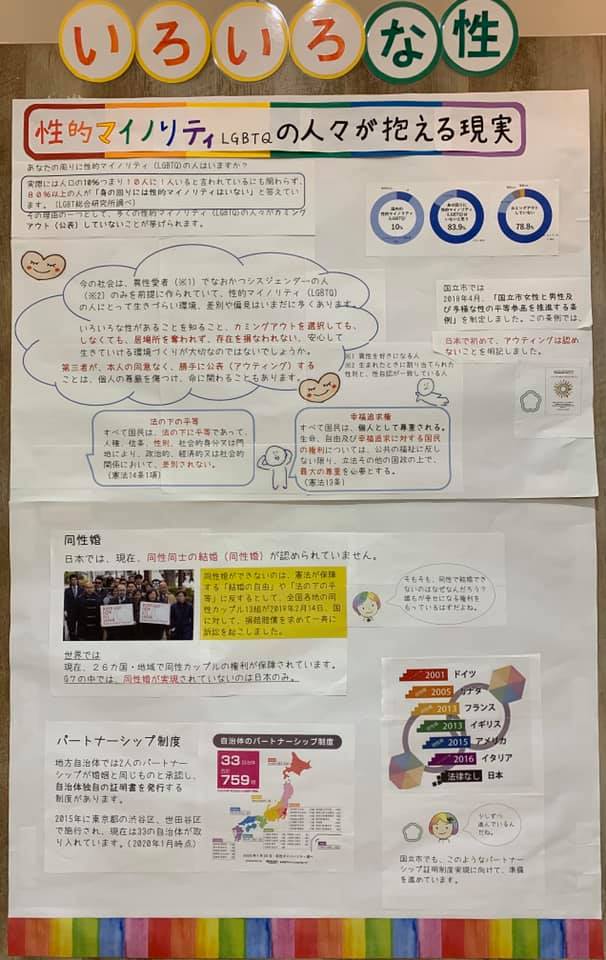 いろいろな性
性的マイノリティLGBTQの人々が抱える現実
あなたの周りに性的マイノリティ(LGBTQ)の人はいますか?
実際には人口の10%つまり10人に1人いると言われているにも関わらず、
80%以上の人が「身の回りには性的マイノリティはいない」と答えてい
ます。(LGBT総合研究所調べ)
今の理由の一つとして、多くの性的マイノリティ(LGBTQ)の人々がカミング
アウト(公表)していないことが挙げられます。
10%
83.9%
78.8%
今の社会は、異性愛者(※1)でなおかつシスジェンダーの人
(※2)のみを前提に作られていて、性的マイノリティ(LGBTQ)
の人にとって生きづらい環境、差別や偏見はいまだに多くあります。
いろいろな性があることを知ること、カミングアウトを選択しても、
しなくても、居場所を奪われず、存在を損なわれない、安心して
生きていける環境づくりが大切なのではないでしょうか。
第三者が、本人の同意なく、勝手に公表(アウティング)する
ことは、個人の尊厳を傷つけ、命に関わることもあります。
※1 異性を好きになる人
※2 生まれたときに割り当てられた
性別と、性自認が一致している人
国立市では
2018年4月、「国立市女性と男性及
び多様な性の平等参画を推進する条
例」を制定しました。この条例では、
日本で初めて、アウティングは認め
ないことを明記しました。
法の下の平等
すべて国民は、法の下に平等であって、
人種、信条、性別、社会的身分又は門
地により、政治的、経済的又は社会的
関係において、差別されない。
(憲法14条1項)
幸福追求権
すべて国民は、個人として尊重される。
生命、自由及び幸福追求に対する国民
の権利については、公共の福祉に反し
ない限り、立法その他の国政の上で、
最大の尊重を必要とする。
(憲法13条)
同性婚
日本では、現在、同性同士の結婚(同性婚)が認められていません。
同性婚ができないのは、憲法が保障
する「結婚の自由」や「法の下の平
等」に反するとして、全国各地の同
性カップル13組が2019年2月14日、国
に対して、損害賠償を求めて一斉に
訴訟を起こしました。
そもそも、同性で結婚でき
ないのはなぜなんだろう?
誰もが幸せになる権利を
もっているはずだよね。
世界では
現在、26カ国・地域で同性カップルの権利が保障されています。
G7の中では、同性婚が実現されていないのは日本のみ。
2001 ドイツ
2005 カナダ
2013 フランス
2013 イギリス
2015 アメリカ
2016 イタリア
法律なし 日本
パートナーシップ制度
地方自治体では2人のパートナ
ーシップが婚姻と同じものと承認し、
自治体独自の証明書を発行する
制度があります。
2015年に東京都の渋谷区、世田谷区
で施行され、現在は33の自治体が取
り入れています。(2020年1月時点)
自治体のパートナーシップ制度
33自治体
759組
少しずつ
進んでいるん
だね。
国立市でも、このようなパートナー
シップ証明制度実現に向けて、準備
を進めています。